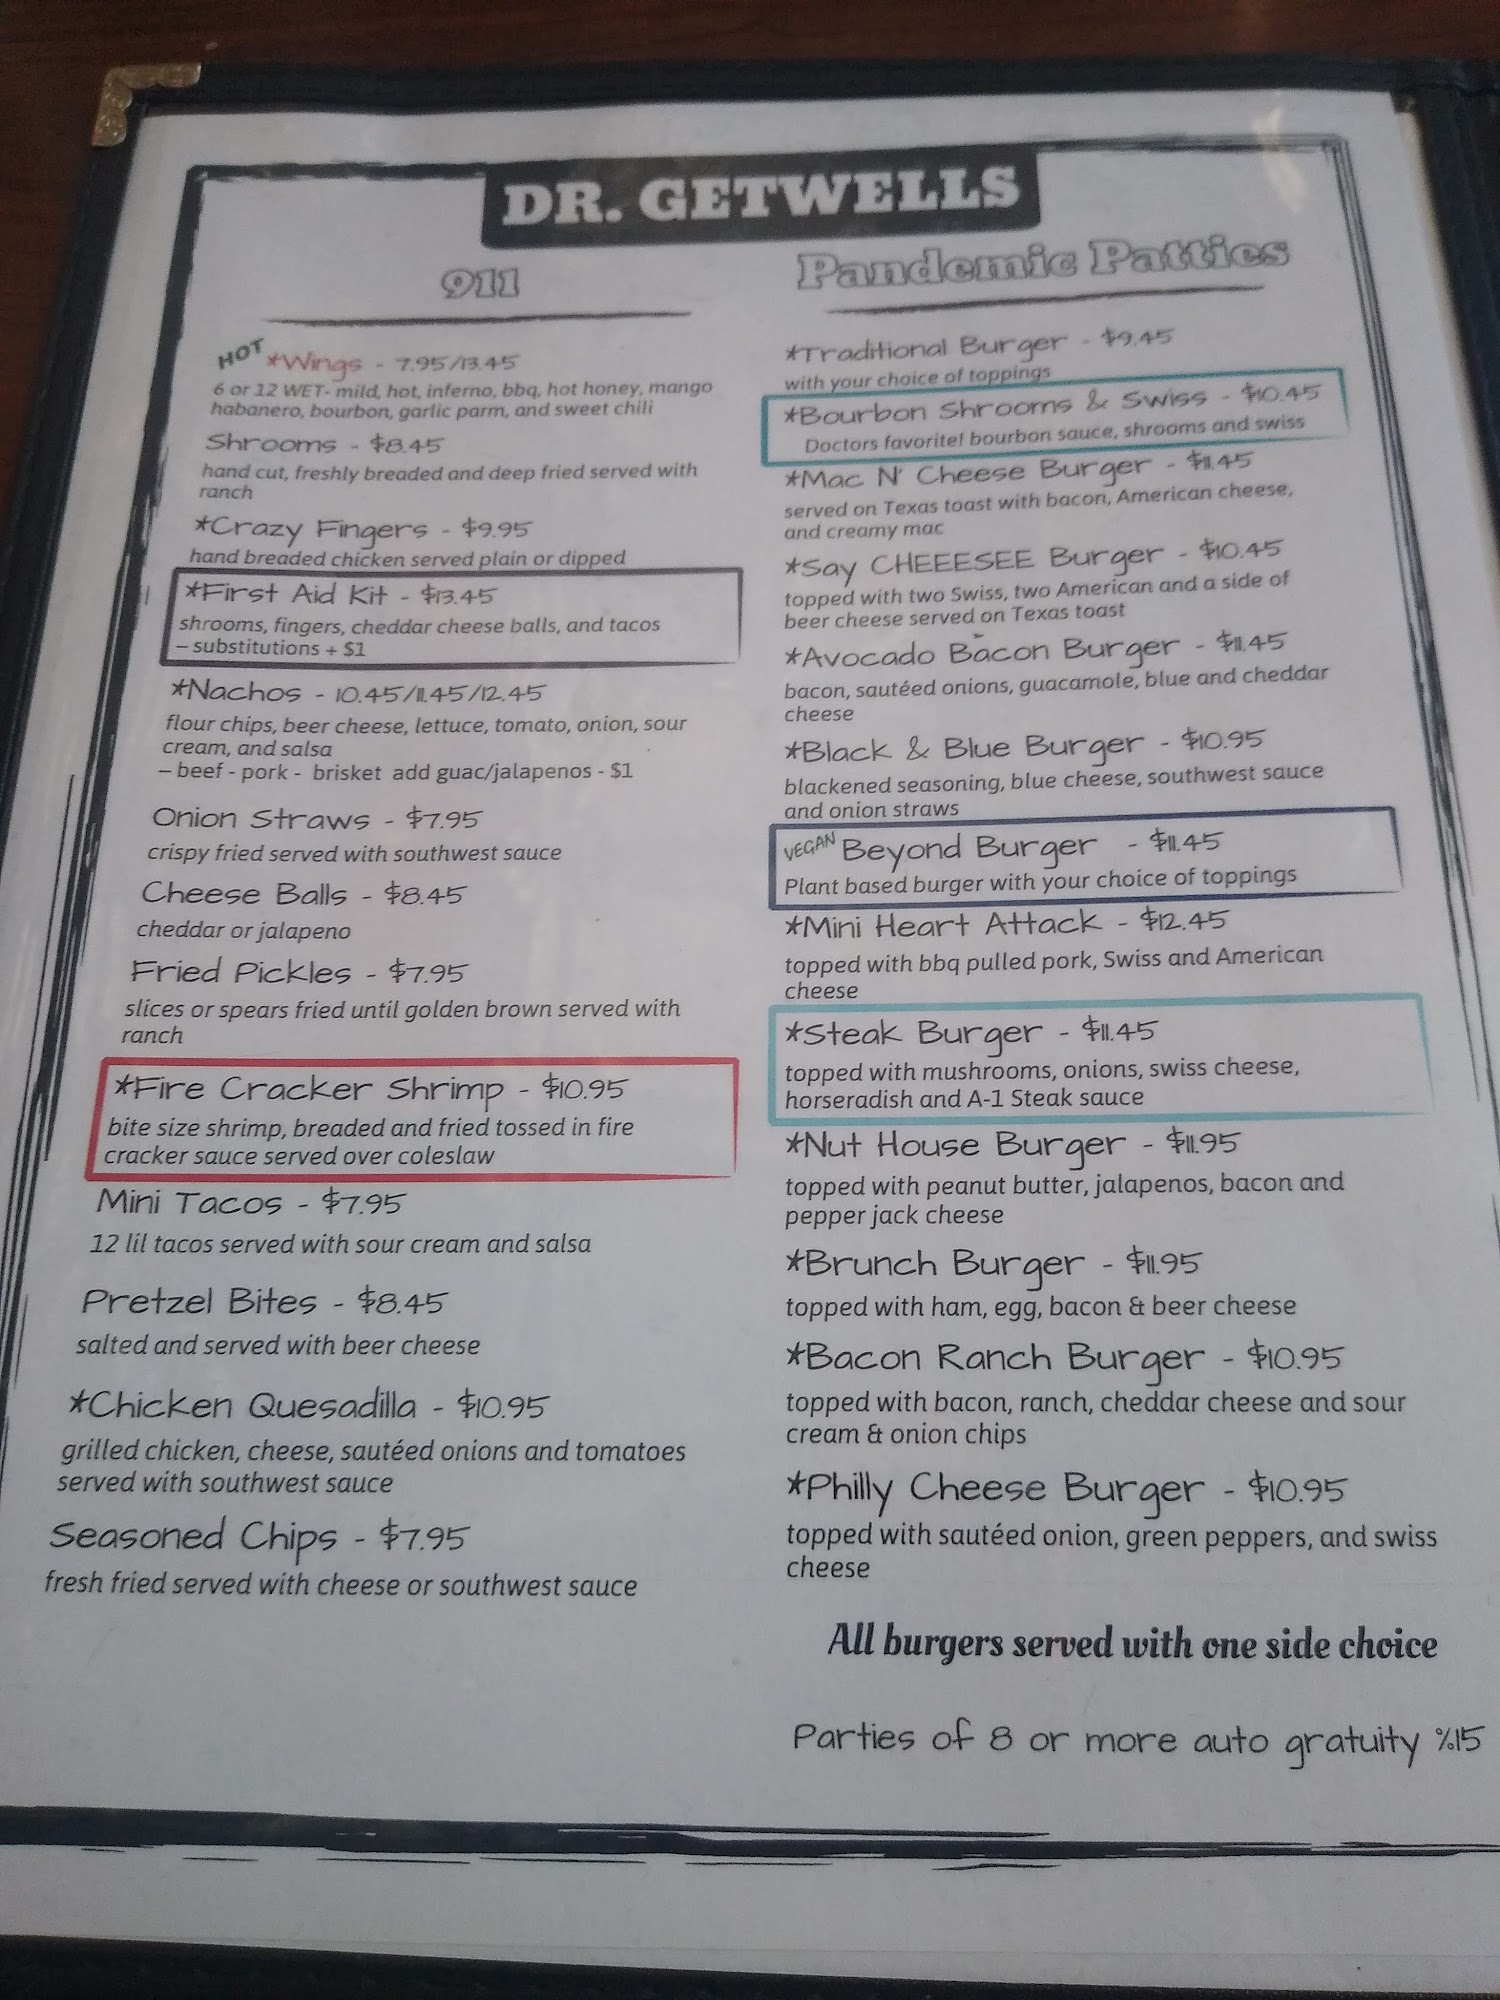 DR. GETWELLS
911
HOT *Wings - 7.95/13.45
6 or 12 WET- mild, hot, inferno, bbq, hot honey, mango
habanero, bourbon, garlic parm, and sweet chili
Shrooms - $8.45
hand cut, freshly breaded and deep fried served with
ranch
*Crazy Fingers - $9.95
hand breaded chicken served plain or dipped
*First Aid Kit - $13.45
shrooms, fingers, cheddar cheese balls, and tacos
– substitutions + $1
*Nachos - 10.45/11.45/12.45
flour chips, beer cheese, lettuce, tomato, onion, sour
cream, and salsa
– beef - pork - brisket add guac/jalapenos - $1
Onion Straws - $7.95
crispy fried served with southwest sauce
Cheese Balls - $8.45
cheddar or jalapeno
Fried Pickles - $7.95
slices or spears fried until golden brown served with
ranch
*Fire Cracker Shrimp - $10.95
bite size shrimp, breaded and fried tossed in fire
cracker sauce served over coleslaw
Mini Tacos - $7.95
12 lil tacos served with sour cream and salsa
Pretzel Bites - $8.45
salted and served with beer cheese
*Chicken Quesadilla - $10.95
grilled chicken, cheese, sautéed onions and tomatoes
served with southwest sauce
Seasoned Chips - $7.95
fresh fried served with cheese or southwest sauce
Pandemic Patties
*Traditional Burger - $9.45
with your choice of toppings
*Bourbon Shrooms & Swiss - $10.45
Doctors favorite! bourbon sauce, shrooms and swiss
*Mac N' Cheese Burger - $11.45
served on Texas toast with bacon, American cheese,
and creamy mac
*Say CHEEESEE Burger - $10.45
topped with two Swiss, two American and a side of
beer cheese served on Texas toast
*Avocado Bacon Burger - $11.45
bacon, sautéed onions, guacamole, blue and cheddar
cheese
*Black & Blue Burger - $10.95
blackened seasoning, blue cheese, southwest sauce
and onion straws
VEGAN Beyond Burger - $11.45
Plant based burger with your choice of toppings
*Mini Heart Attack - $12.45
topped with bbq pulled pork, Swiss and American
cheese
*Steak Burger - $11.45
topped with mushrooms, onions, swiss cheese,
horseradish and A-1 Steak sauce
*Nut House Burger - $11.95
topped with peanut butter, jalapenos, bacon and
pepper jack cheese
*Brunch Burger - $11.95
topped with ham, egg, bacon & beer cheese
*Bacon Ranch Burger - $10.95
topped with bacon, ranch, cheddar cheese and sour
cream & onion chips
*Philly Cheese Burger - $10.95
topped with sautéed onion, green peppers, and swiss
cheese
All burgers served with one side choice
Parties of 8 or more auto gratuity %15